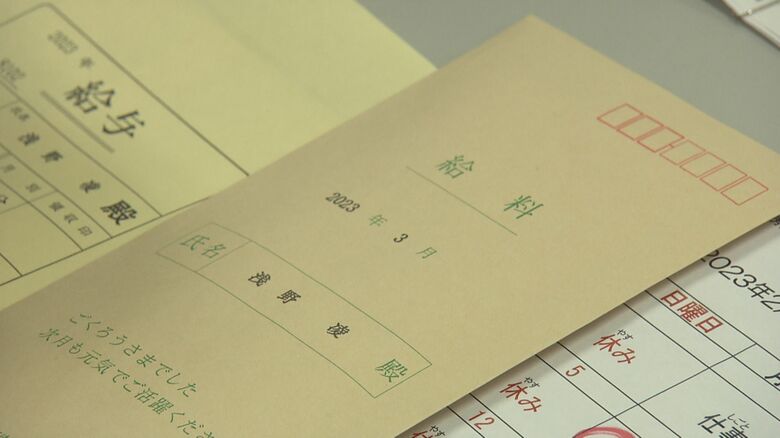 2023年
給与
氏名 浅野 凌 殿
領収印
給料
2023 年 3 月
氏名 浅野 凌 殿
ごくろうさまでした
次月も元気でご活躍くださ
2023年2
日曜日
月
やす
休み
5
やす
休み
12
やす
しごと
仕事